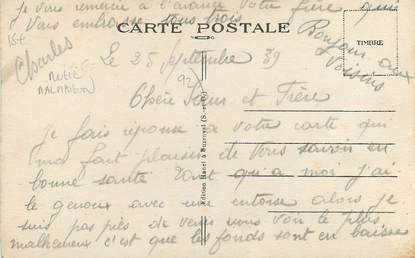 je vous remercie à l'avance votre frère qui
vous embrasse tous trois
Charles
Bonjour aux
Voisins
CARTE POSTALE
TIMBRE
15€
Le 25 Septembre 39
92
Chère Sœur et Frère
je fais réponse à votre carte qui
ma fait plaisir de vous savoir en
bonne santé tant qu'a moi j'ai
le genoux avec une entorse alors je
suis pas près de venir vous voir le plus
malheureux c'est que les fonds sont en baisse